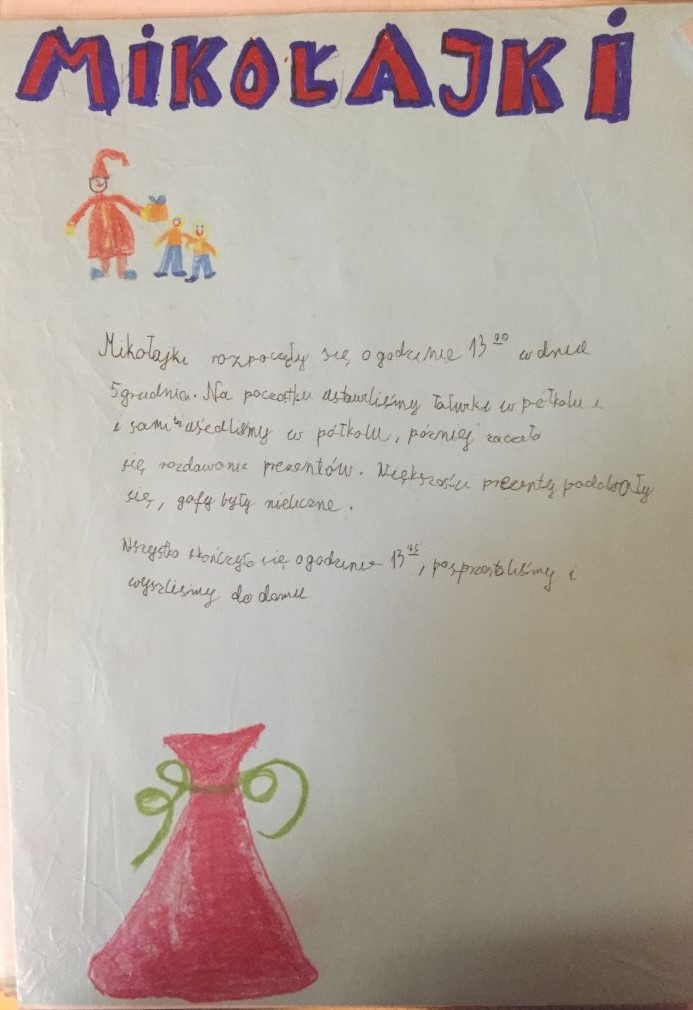 MIKOŁAJKI
Mikołajki rozpoczęły się o godzinie 13⁰⁰ w dniu
5 grudnia. Na początku ustawiliśmy ławki w półkolu i
i sami usiedliśmy w półkolu, później zaczęło
się rozdawanie prezentów. Większości prezenty podobały
się, gafy były nieliczne.
Wszystko skończyło się o godzinie 13⁴⁵, posprzątaliśmy i
wyszliśmy do domu